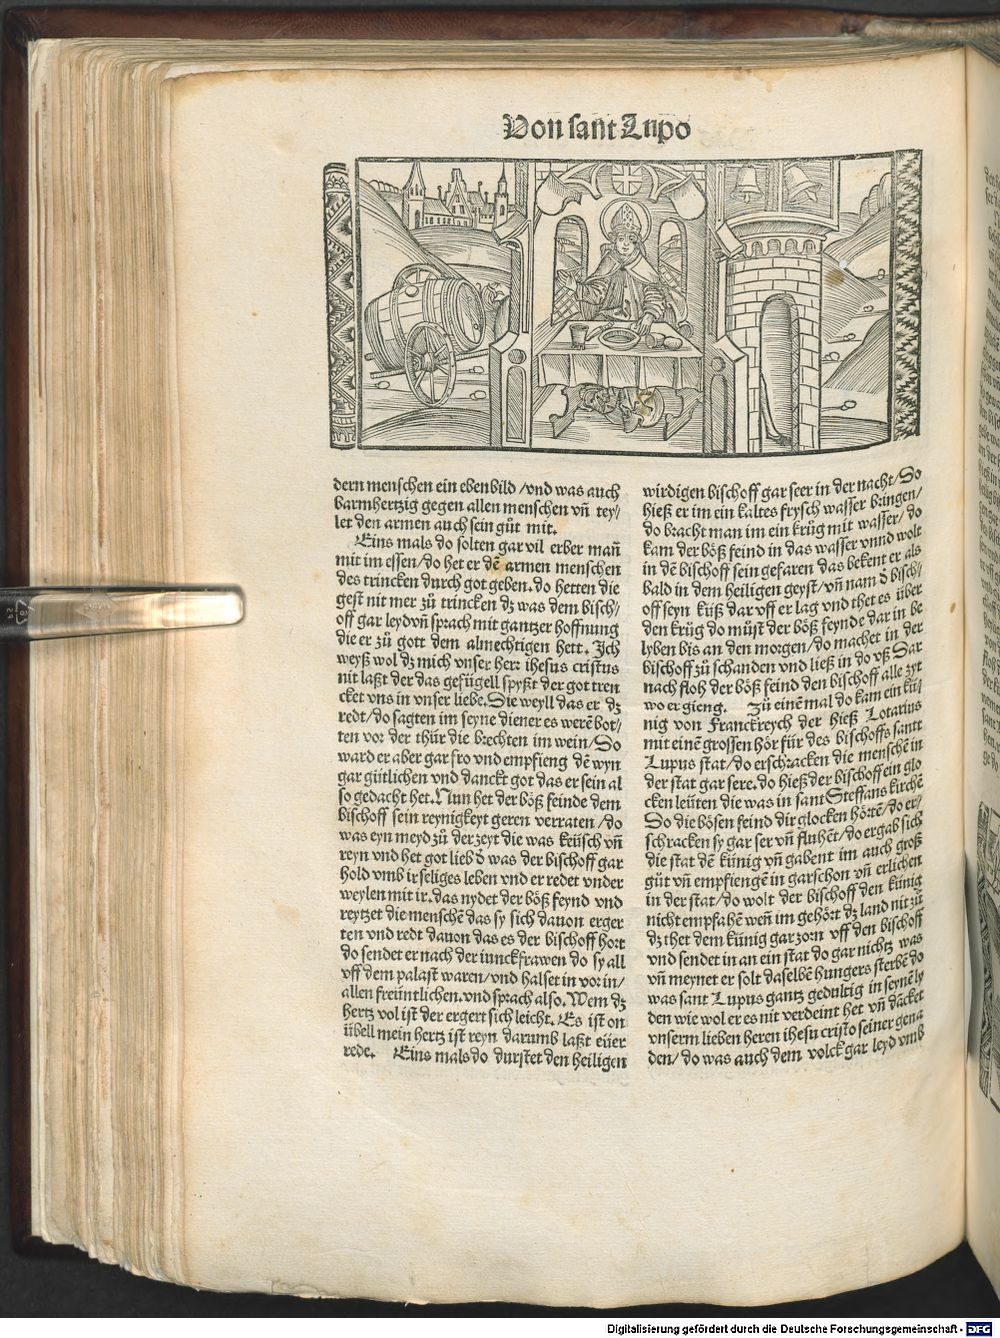 Von sant Lupo
dern menschen ein ebenbild/vnd was auch
barmhertzig gegen allen menschen vñ tey/
let den armen auch sein gůt mit.
Eins mals do solten gar vil erber mañ
mit im essen/do het er dē armen menschen
des trincken durch got geben. do hetten die
gest nit mer zů trincken dz was dem bisch/
off gar leyd vñ sprach mit gantzer hoffnung
die er zů gott dem almechtigen hett. Ich
weyß wol dz mich vnser herr ihesus cristus
nit laßt der das gefügell spyßt der got tren
cket vns in vnser liebe. Die weyll das er dz
redt/do sagten im seyne diener es werē bot/
ten vor der thür die brechten im wein/So
ward er aber gar fro vnd empfieng dē wyn
gar gütlichen vnd danckt got das er sein al
so gedacht het. Nun het der böß feinde dem
bischoff sein reynigkeyt geren verraten/do
was eyn meyd zů der zeyt die was keüsch vñ
reyn vnd het got lieb d̄ was der bischoff gar
hold vmb ir seliges leben vnd er redt vnder
weylen mit ir. das nydet der böß feynd vnd
reytzet die menschē das sy sich dauon erger
ten vnd redt dauon das es der bischoff hort
do sendet er nach der iunckfrawen do sy all
vff dem palast waren/vnd halset in vor in/
allen freüntlichen. vnd sprach also. Wem dz
hertz vol ist der ergert sich leicht. Es ist on
übell mein hertz ist reyn darumb laßt eüer
rede. Eins mals do durstet den heiligen
wirdigen bischoff gar seer in der nacht/So
hieß er im ein kaltes frysch wasser bringen/
do bracht man im ein krüg mit wasser/do
kam der böß feind in das wasser vnnd wolt
in dē bischoff sein gefaren das bekent er als
bald in dem heiligen geyst/vñ nam d̄ bisch/
off seyn küß dar vff er lag vnd thet es über
den krüg do můst der böß feynde dar in be
lyben bis an den morgen/do machet in der
bischoff zů schanden vnd ließ in do vß Dar
nach floh der böß feind den bischoff alle zyt
wo er gieng. Zů einē mal do kam ein kü/
nig von Franckreych der hieß Lotarius
mit einē grossen hör für des bischoffs santt
Lupus stat/do erschracken die menschē in
der stat gar sere. do hieß der bischoff ein glo
cken leüten die was in sant Steffans kirchē
So die bösen feind dir glocken hörtē/do er/
schracken sy gar ser vñ fluhēt/do ergab sich
die stat dē künig vñ gabent im auch groß
gůt vñ empfiengē in gar schon vñ erlichen
in der stat/do wolt der bischoff den künig
nicht empfahē weñ im gehört dz land nit zů
dz thet dem künig gar zorn vff den bischoff
vnd sendet in an ein stat do gar nichtz was
vñ meynet er solt daselbē hungers sterbē do
was sant Lupus gantz gedultig in seynē ly
den wie wol er es nit verdeint het vñ dācket
vnserm lieben heren ihesu cristo seiner gena
den/do was auch dem volck gar leyd vmb
Digitalisierung gefördert durch die Deutsche Forschungsgemeinschaft - DFG